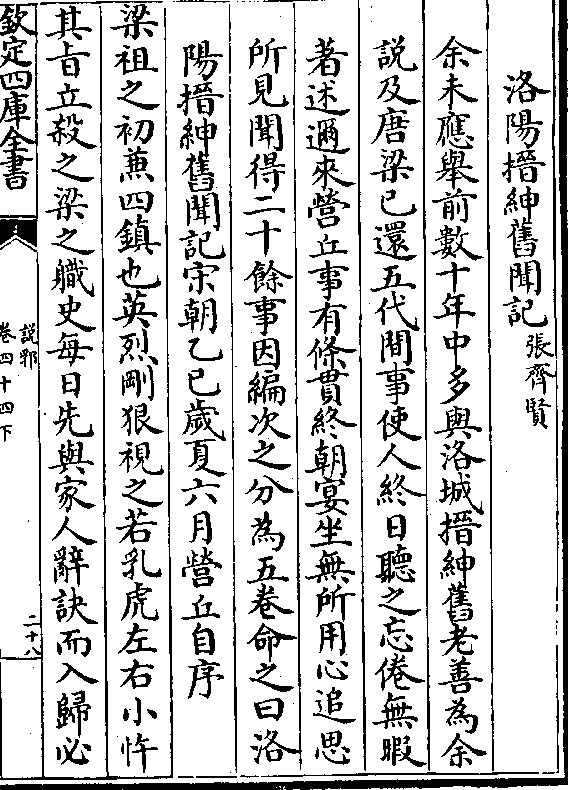 洛陽搢紳舊聞記張齊賢
余未應舉前數十年中多與洛城搢紳舊老善為余
説及唐梁已還五代間事使人終日聽之忘倦無暇
著述邇來營丘事有條貫終朝宴坐無所用心追思
所見聞得二十餘事因編次之分為五卷命之曰洛
陽搢紳舊聞記宋朝乙巳歲夏六月營丘自序
梁祖之初兼四鎮也英烈剛狠視之若乳虎左右小忤
其旨立殺之梁之軄吏每日先與家人辭訣而入歸必
欽定四庫全書
説郛
卷四十四下
二十八